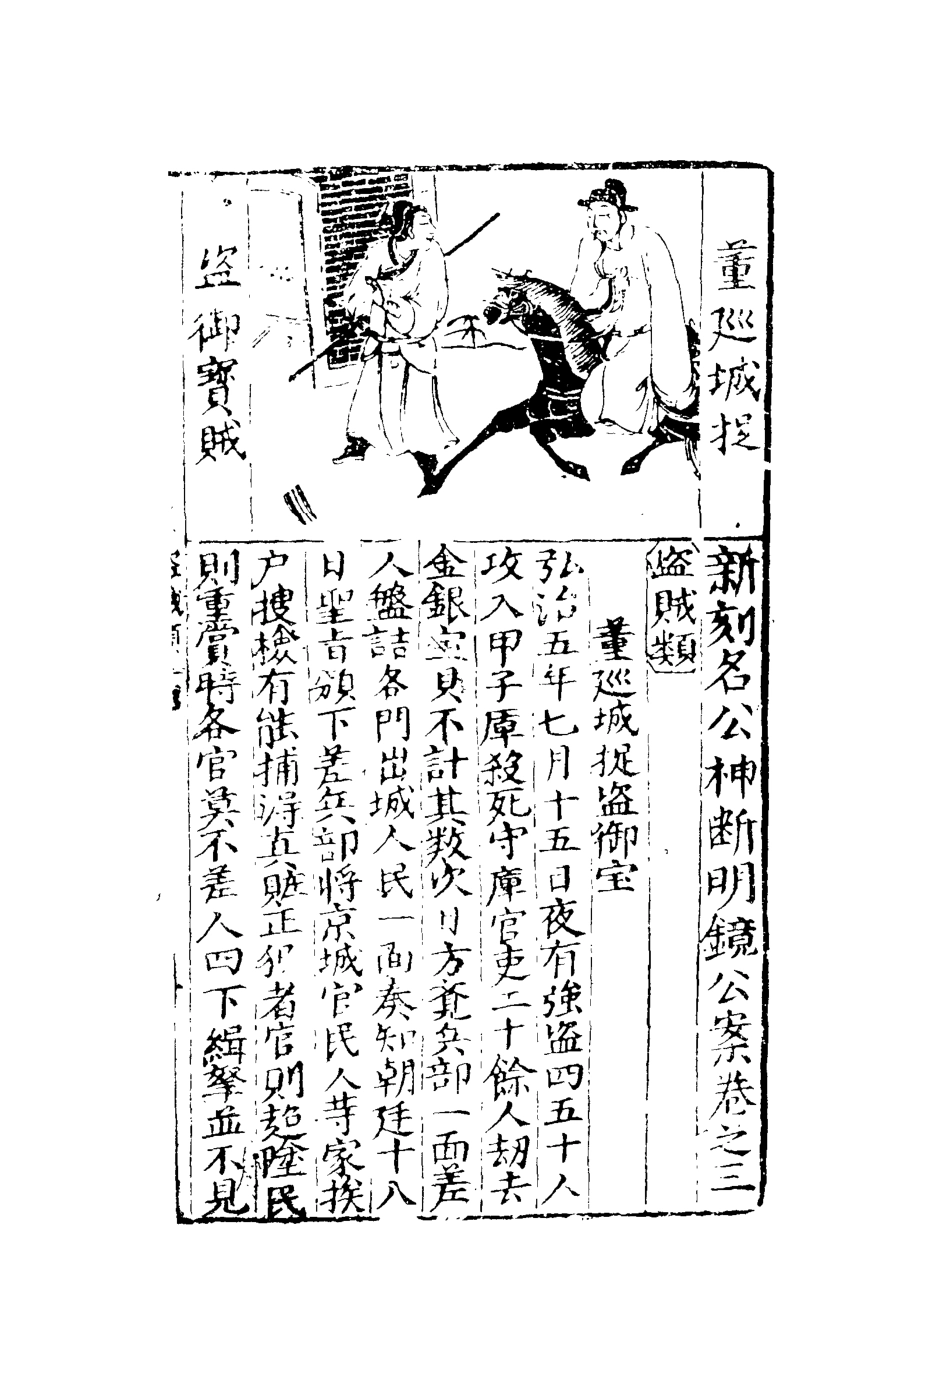 董廵城捉
盗御寳賊
新刻名公神断明鏡公案巻之三
盗賊類
董廵城捉盗御宝
弘治五年七月十五日夜有強盗四五十人
攻入甲子庫殺死守庫官吏二十餘人刼去
金銀宝貝不計其数次日方竟兵部一面差
人盤詰各門出城人民一面奏知朝廷十八
日聖旨頒下差兵部将京城官民人等家挨
户搜檢有能捕淂真賍正犯者官則超陞民
則重賞時各官莫不差人四下緝拏並不見